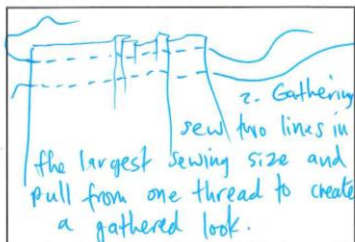 2. Gathering
sew two lines in
the largest sewing size and
pull from one thread to create
a gathered look.